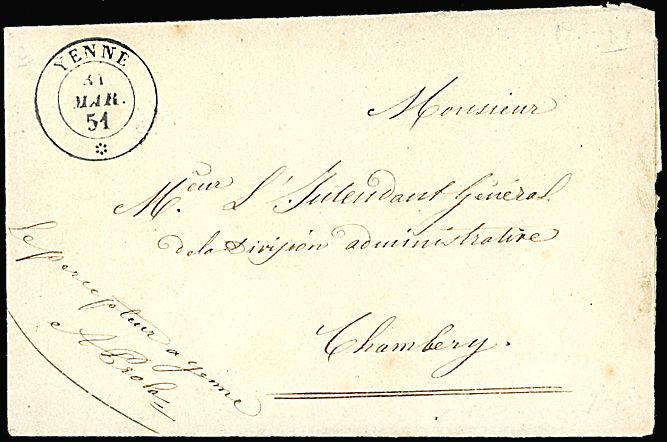 YENNE
31
MAR.
51
Monsieur
M.eur L'Intendant Général
de la Division administrative
Chambery.
Le percepteur a Yenne